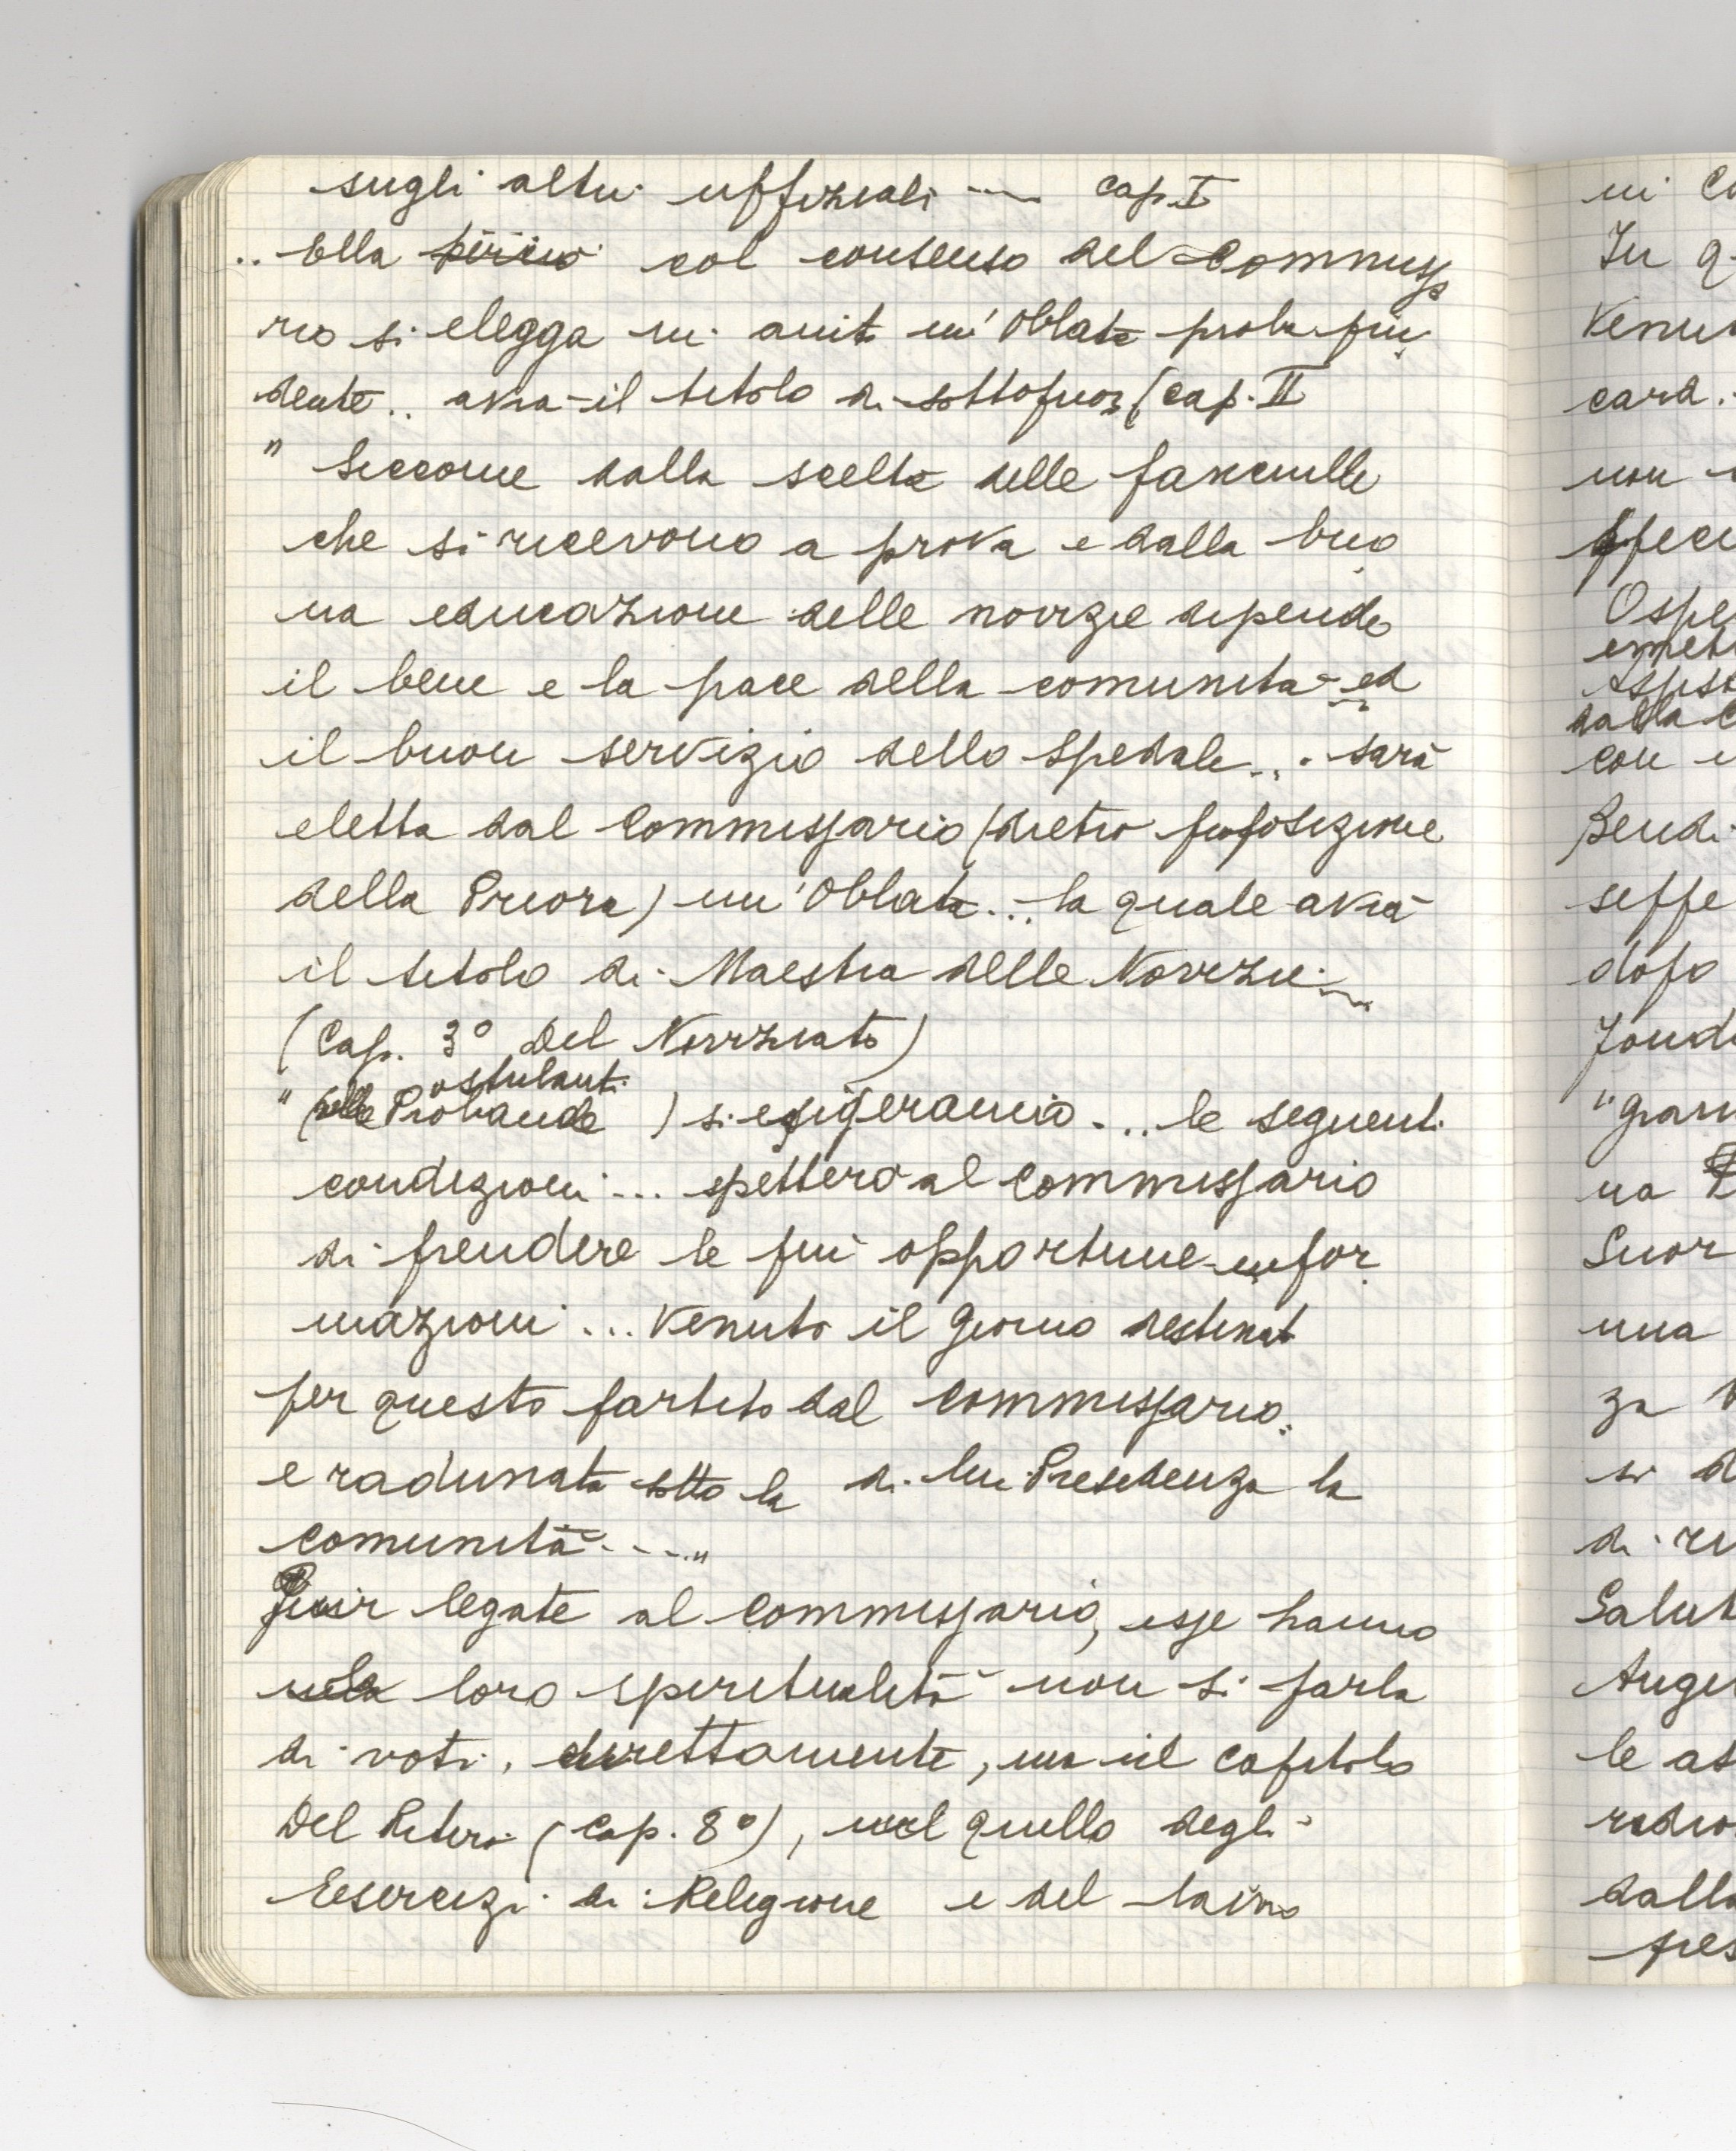 sugli altri uffiziali --- cap. I
.. Ella però col consenso del Commissa
rio si elegga in aiuto un' Oblata proba pru
dente .. avrà il titolo di sottopriora (cap. II
" Siccome dalla scelta delle fanciulle
che si ricevono a prova e dalla buo
na educazione delle novizie dipende
il bene e la pace della comunità ed
il buon servizio dello Spedale... sarà
eletta dal Commissario (dietro proposizione
della Priora) un' Oblata... la quale avrà
il titolo di Maestra delle Novizie
(Cap. 3° Del Noviziato)
ostulanti
" (nelle Probande ) si esigeranno ... le seguenti
condizioni ... spetterà al Commissario
di prendere le più opportune infor
mazioni ... Venuto il giorno destinat
per questo partito dal commissario
e radunata sotto la di lui Presidenza la
comunità ...."
Pur legate al Commissario, esse hanno
loro spiritualità non si parla
di voti, direttamente, ma il capitolo
Del Ritiro (Cap. 8°), nel quello degli
Esercizi di Religione e del
ni
In q
Venu
card.
non
speci
Ospe
dalla
con
Bendi
seffe
dopo
Fond
"gran
na
Suor
una
za
si d
di
Salut
Auge
le as
dalla